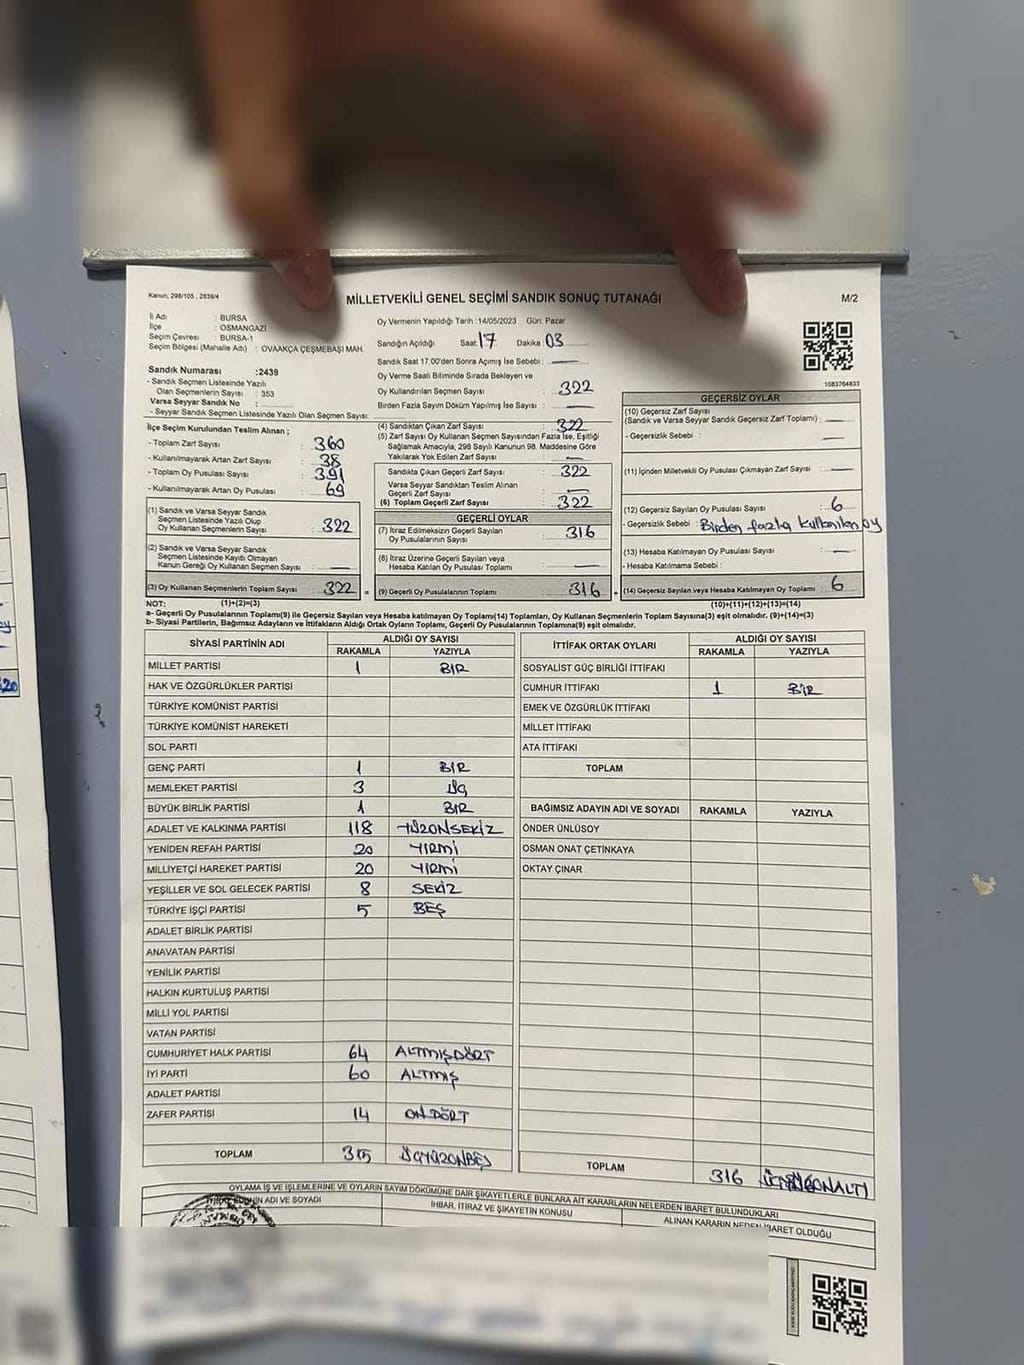 Kanun; 298/105 , 2839/4
MİLLETVEKİLİ GENEL SEÇİMİ SANDIK SONUÇ TUTANAĞI
M/2
İl Adı : BURSA
İlçe : OSMANGAZİ
Seçim Çevresi : BURSA-1
Seçim Bölgesi (Mahalle Adı) : OVAAKÇA ÇEŞMEBAŞI MAH.
Sandık Numarası :2439
- Sandık Seçmen Listesinde Yazılı
Olan Seçmenlerin Sayısı : 353
Varsa Seyyar Sandık No :
- Seyyar Sandık Seçmen Listesinde Yazılı Olan Seçmen Sayısı:
İlçe Seçim Kurulundan Teslim Alınan ;
- Toplam Zarf Sayısı : 360
- Kullanılmayarak Artan Zarf Sayısı : 38
- Toplam Oy Pusulası Sayısı : 391
- Kullanılmayarak Artan Oy Pusulası : 69
(1) Sandık ve Varsa Seyyar Sandık
Seçmen Listesinde Yazılı Olup
Oy Kullanan Seçmenlerin Sayısı : 322
(2) Sandık ve Varsa Seyyar Sandık
Seçmen Listesinde Kayıtlı Olmayan
Kanun Gereği Oy Kullanan Seçmenlerin Sayısı : —
(3) Oy Kullanan Seçmenlerin Toplam Sayısı : 322
(1)+(2)=(3)
Oy Vermenin Yapıldığı Tarih :14/05/2023 Gün: Pazar
Sandığın Açıldığı Saat: 17 Dakika : 03
Sandık Saat 17:00'den Sonra Açılmış İse Sebebi : —
Oy Verme Saati Bitiminde Sırada Bekleyen ve
Oy Kullandırılan Seçmen Sayısı : 322
Birden Fazla Sayım Döküm Yapılmış İse Sayısı : —
(4) Sandıktan Çıkan Zarf Sayısı : 322
(5) Zarf Sayısı Oy Kullanan Seçmen Sayısından Fazla İse, Eşitliği
Sağlamak Amacıyla, 298 Sayılı Kanunun 98. Maddesine Göre
Yakılarak Yok Edilen Zarf Sayısı : —
Sandıkta Çıkan Geçerli Zarf Sayısı : 322
Varsa Seyyar Sandıktan Teslim Alınan
Geçerli Zarf Sayısı : —
(6) Toplam Geçerli Zarf Sayısı : 322
GEÇERLİ OYLAR
(7) İtiraz Edilmeksizin Geçerli Sayılan
Oy Pusulalarının Sayısı : 316
(8) İtiraz Üzerine Geçerli Sayılan veya
Hesaba Katılan Oy Pusulası Toplamı : —
(9) Geçerli Oy Pusulalarının Toplamı : 316
1083764833
GEÇERSİZ OYLAR
(10) Geçersiz Zarf Sayısı
(Sandık ve Varsa Seyyar Sandık Geçersiz Zarf Toplamı) : —
- Geçersizlik Sebebi : —
(11) İçinden Milletvekili Oy Pusulası Çıkmayan Zarf Sayısı : —
(12) Geçersiz Sayılan Oy Pusulası Sayısı : 6
- Geçersizlik Sebebi : Birden fazla kullanılan oy
(13) Hesaba Katılmayan Oy Pusulası Sayısı : —
- Hesaba Katılmama Sebebi :
(14) Geçersiz Sayılan veya Hesaba Katılmayan Oy Toplamı : 6
(10)+(11)+(12)+(13)=(14)
NOT:
a- Geçerli Oy Pusulalarının Toplamı(9) İle Geçersiz Sayılan veya Hesaba katılmayan Oy Toplamı(14) Toplamları, Oy Kullanan Seçmenlerin Toplam Sayısına(3) eşit olmalıdır. (9)+(14)=(3)
b- Siyasi Partilerin, Bağımsız Adayların ve İttifakların Aldığı Ortak Oyların Toplamı, Geçerli Oy Pusulalarının Toplamına(9) eşit olmalıdır.
SİYASİ PARTİNİN ADI ALDIĞI OY SAYISI
RAKAMLA YAZIYLA
MİLLET PARTİSİ 1 BİR
HAK VE ÖZGÜRLÜKLER PARTİSİ
TÜRKİYE KOMÜNİST PARTİSİ
TÜRKİYE KOMÜNİST HAREKETİ
SOL PARTİ
GENÇ PARTİ 1 BİR
MEMLEKET PARTİSİ 3 Üç
BÜYÜK BİRLİK PARTİSİ 1 BİR
ADALET VE KALKINMA PARTİSİ 118 YÜZONSEKİZ
YENİDEN REFAH PARTİSİ 20 YİRMİ
MİLLİYETÇİ HAREKET PARTİSİ 20 YİRMİ
YEŞİLLER VE SOL GELECEK PARTİSİ 8 SEKİZ
TÜRKİYE İŞÇİ PARTİSİ 5 BEŞ
ADALET BİRLİK PARTİSİ
ANAVATAN PARTİSİ
YENİLİK PARTİSİ
HALKIN KURTULUŞ PARTİSİ
MİLLİ YOL PARTİSİ
VATAN PARTİSİ
CUMHURİYET HALK PARTİSİ 64 ALTMIŞDÖRT
İYİ PARTİ 60 ALTMIŞ
ADALET PARTİSİ
ZAFER PARTİSİ 14 ONDÖRT
TOPLAM 315 ÜÇYÜZONBEŞ
İTTİFAK ORTAK OYLARI ALDIĞI OY SAYISI
RAKAMLA YAZIYLA
SOSYALİST GÜÇ BİRLİĞİ İTTİFAKI
CUMHUR İTTİFAKI 1 BİR
EMEK VE ÖZGÜRLÜK İTTİFAKI
MİLLET İTTİFAKI
ATA İTTİFAKI
TOPLAM
BAĞIMSIZ ADAYIN ADI VE SOYADI RAKAMLA YAZIYLA
ÖNDER ÜNLÜSOY
OSMAN ONAT ÇETİNKAYA
OKTAY ÇINAR
TOPLAM 316 ÜÇYÜZONALTI
OYLAMA İŞ VE İŞLEMLERİNE VE OYLARIN SAYIM DÖKÜMÜNE DAİR ŞİKAYETLERLE BUNLARA AİT KARARLARIN NELERDEN İBARET BULUNDUKLARI
ADI VE SOYADI
İHBAR, İTİRAZ VE ŞİKAYETİN KONUSU
ALINAN KARARIN NEDEN İBARET OLDUĞU